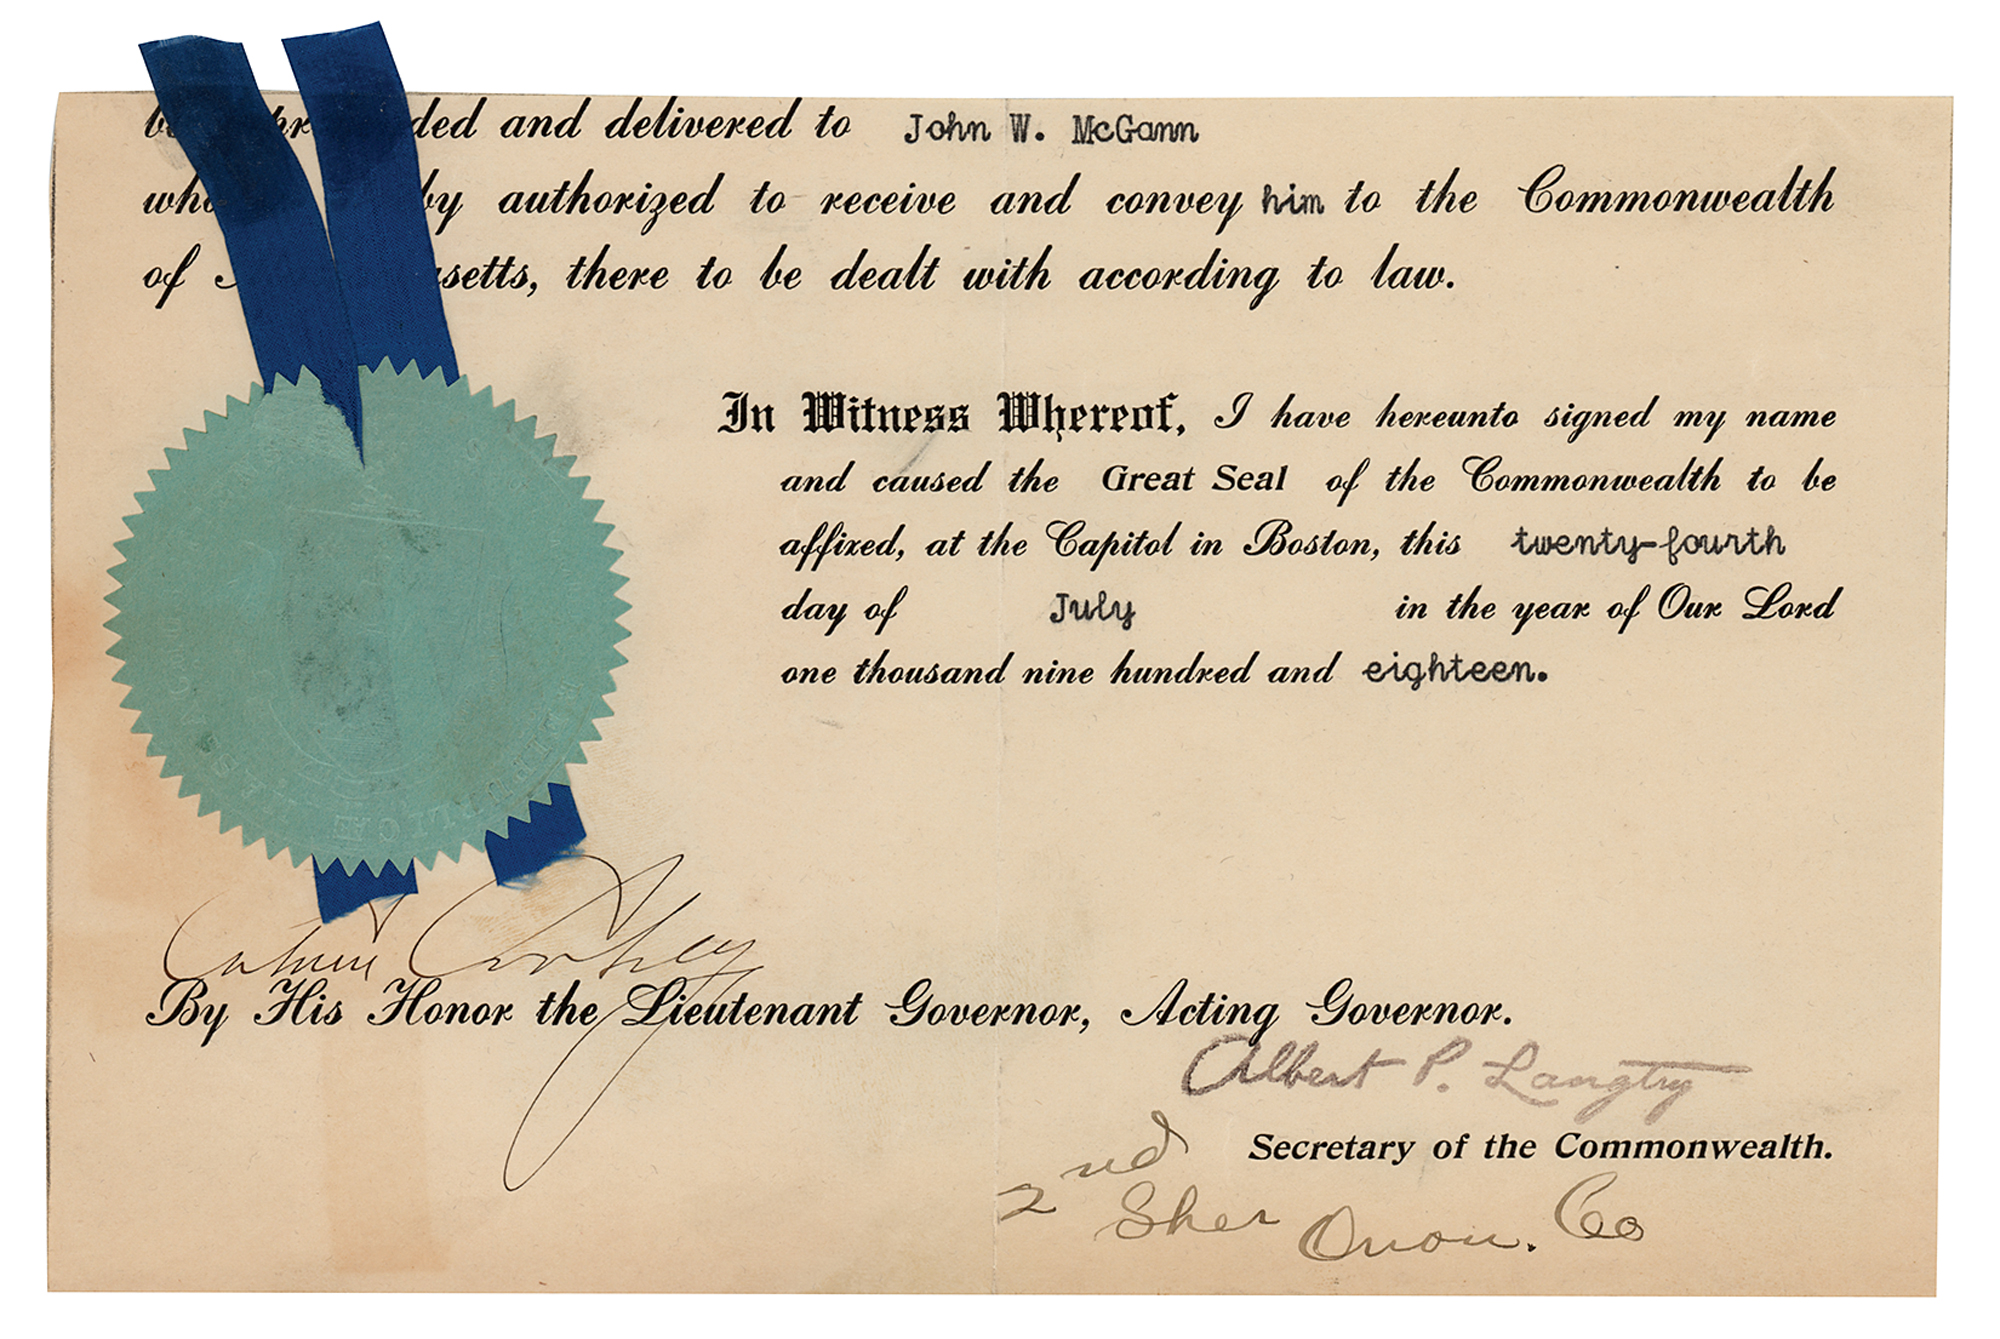 and delivered to John W. McGann
authorized to receive and convey him to the Commonwealth
of setts, there to be dealt with according to law.
In Witness Whereof, I have hereunto signed my name
and caused the Great Seal of the Commonwealth to be
affixed, at the Capitol in Boston, this twenty-fourth
day of July in the year of Our Lord
one thousand nine hundred and eighteen.
Calvin Coolidge
By His Honor the Lieutenant Governor, Acting Governor.
Albert P. Langtry
Secretary of the Commonwealth.
2nd Sher Onon. Co